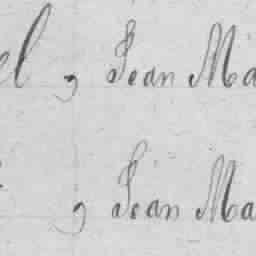 el, Jean Ma
, Jean Ma